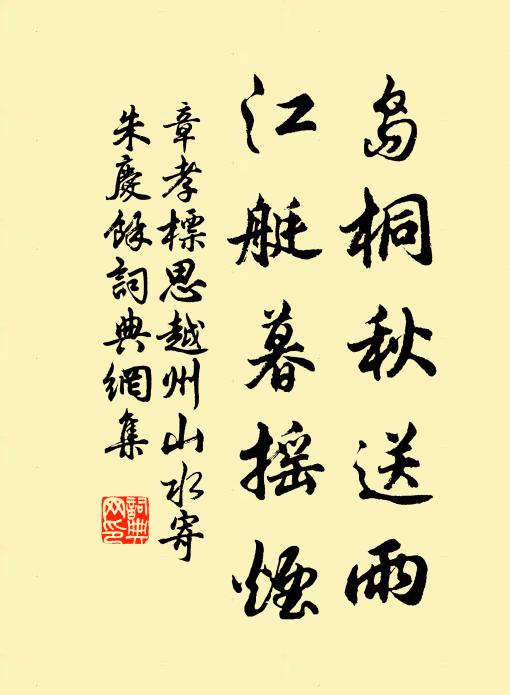 島桐秋送雨
江艇暮摇煙
章孝標思越州山水寄
朱慶餘詞典網集
詞典网印